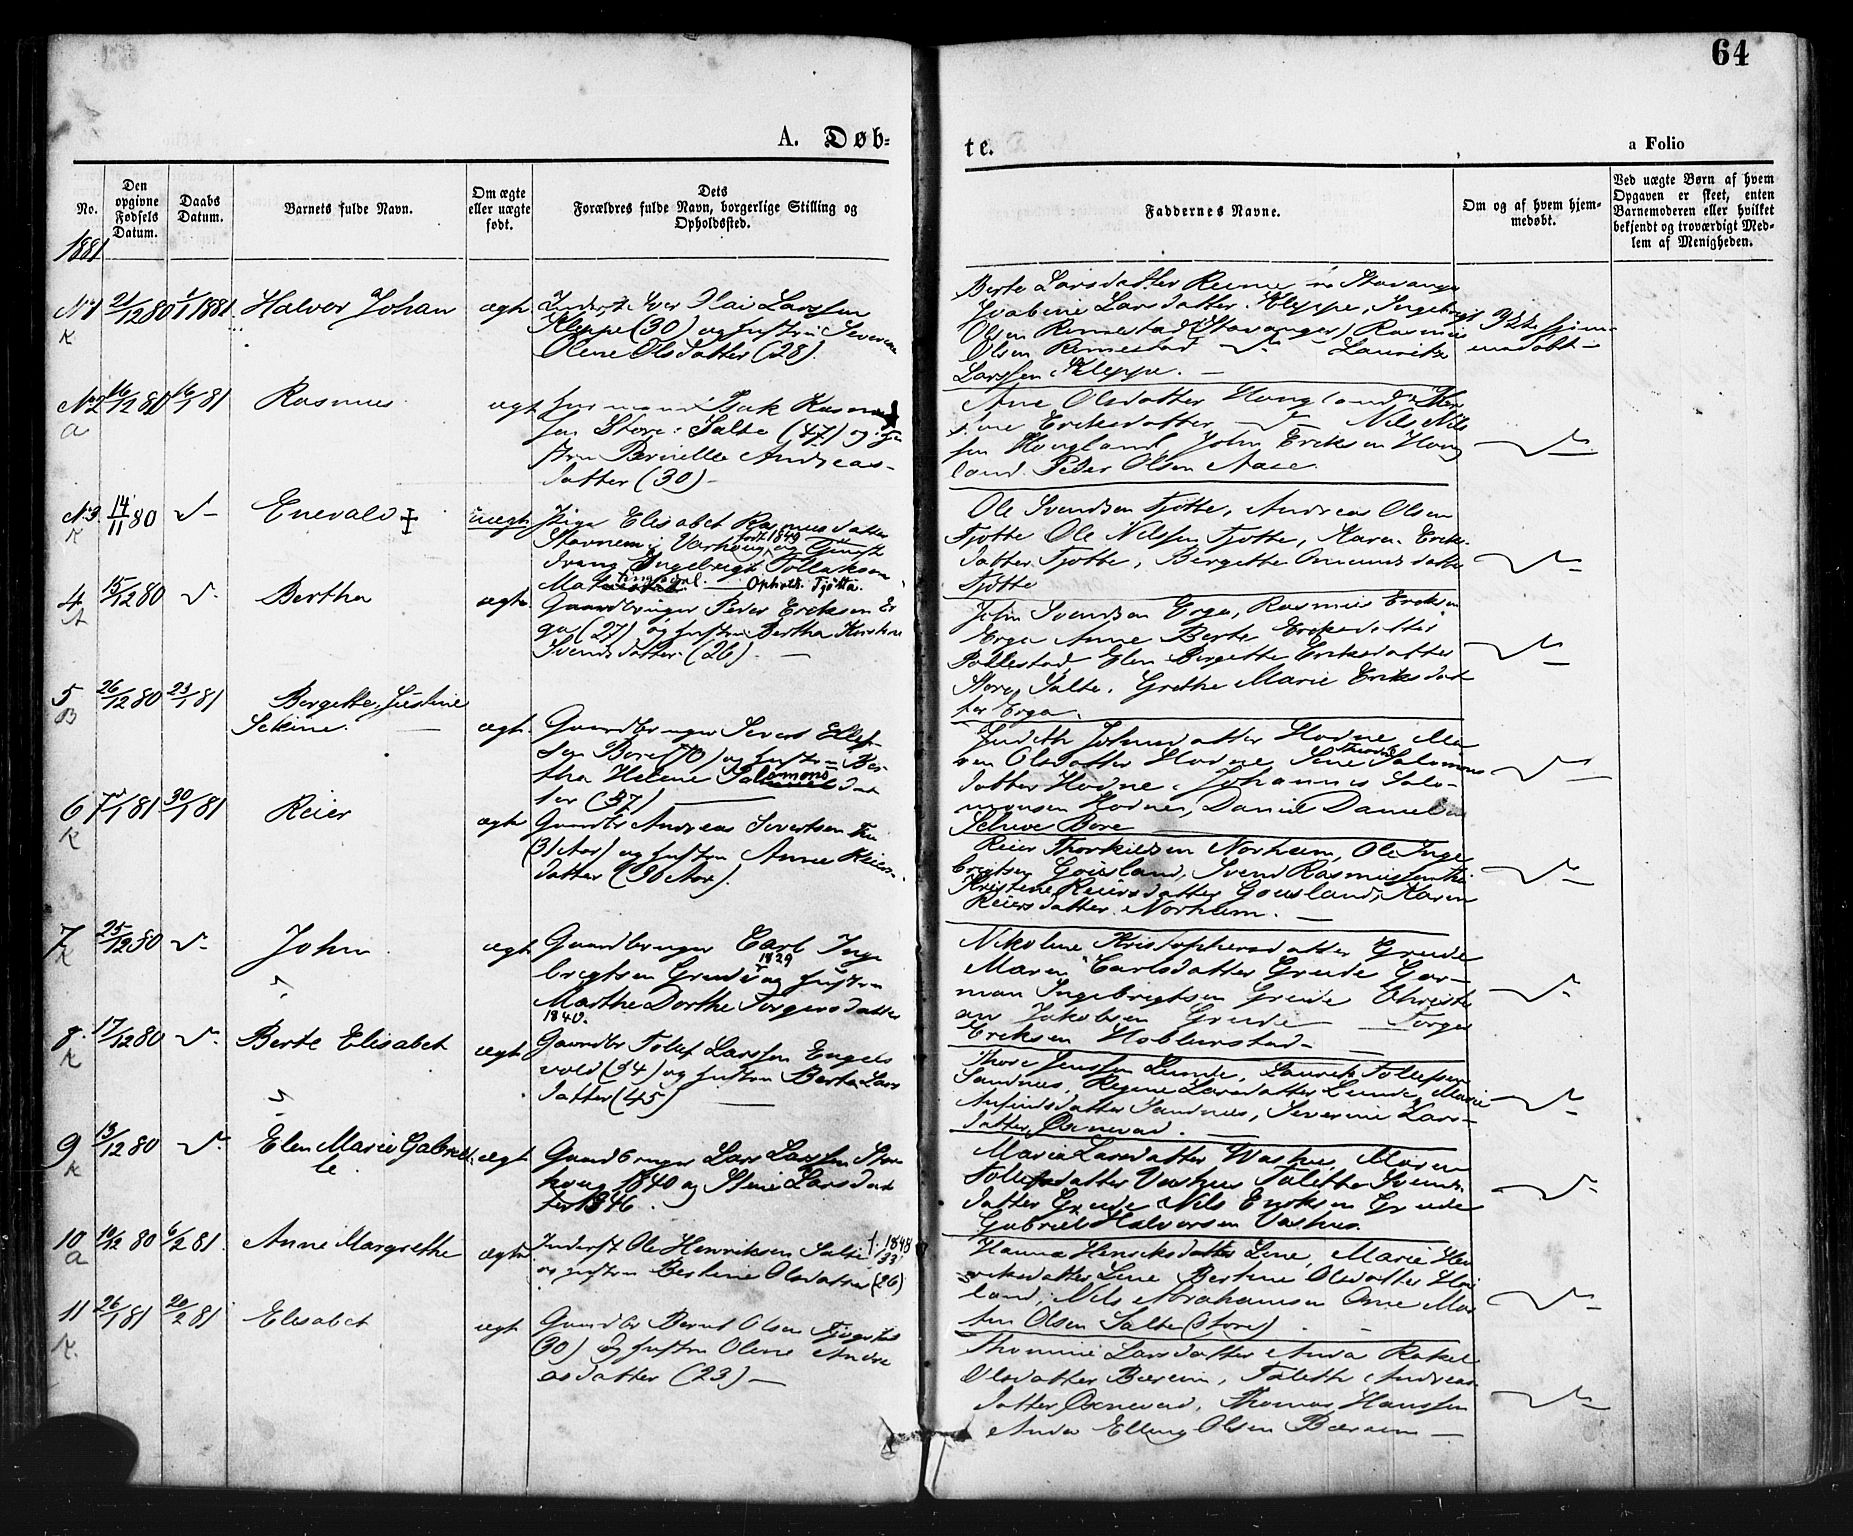 64
A. Døb-
te.
a Folio
No.
Den opgivne Fødsels Datum.
Daabs Datum.
Barnets fulde Navn.
Om ægte eller uægte født.
Dets Forældres fulde Navn, borgerlige Stilling og Opholdssted.
Faddernes Navne.
Om og af hvem hjem-medøbt.
Ved uægte Børn af hvem Opgaven er skeet, enten Barnemoderen eller hvilket bekjendt og troværdigt Med-lem af Menigheden.
1881
No 1 21/12 80 1/1 1881 Halvor Johan ægte
K
Inderst Iver Olai Larssen
Kleppe (30) og hustru Severine
Olene Olsdatter (28).
Berte Larsdatter Reime
Larsdatter Kleppe, Ingebrigt
Olsen Rimestad (Stavanger) Rasmus
Olsen Rimestad Lauritz
Larssen Kleppe.
Ikke hjem-
medøbt
No 2 16/12 80 16/1 81 Rasmus ægte
a
Isak Rasmus
sen Store Salte (47) og Hu
stru Berielle Andreas-
datter (30)
Ane Olsdatter Haugland
Eriksdatter Nils Nil
sen Haugland, John Eriksen Haug
land. Peder Olsen Aase.
No 3 14/11 80 Enevald uægte
K
Pige Elisabet Rasmusdatter
Stavnem i Varhoug født 1849 og Tjeneste
dreng Ingebrigt Tollaksen
Ophold. Tjøtta.
Ole Svendsen Tjøtte, Andreas Olsen
Tjøtte Ole Nilssen Tjøtte, Karen Erik-
datter Tjøtte, Bergette Omundsdatter
Tjøtte
4 15/12 80 Bertha ægte
A
Gaardbruger Peder Eriksen Er
ga (27) og hustru Bertha Kirstine
Svendsdatter (26).
John Svendsen Erga, Rasmus Eriksen
Erga Anne Berte Eriksdatter
Pollestad Elen Bergette Eriksdatter
Store Salte. Grethe Marie Eriksdat
ter Erga.
5 26/12 80 23/1 81 Bergette Justine
B Sekine. ægte
Gaardbruger Sivert Ellef-
sen Bore (70) og hustru Ber-
tha Helene Salomonsdat
ter (37)
Judith Johnsdatter Hodne, Ma
ren Olsdatter Hodne Sene Theodora Salomons
datter Hodne, Johannes Salo-
monsen Hodne, Daniel Danielsen
Scheve Bore
6 7/1 81 30/1 81 Reier ægte
K
Gaardbr Andreas Sivertsen Thu
(31 Aar) og hustru Anne Reiers-
datter (36 Aar).
Reier Thorkildsen Norheim, Ole Inge
brigtsen Gousland, Svend Rasmussen Thu
Kristine Reiersdatter Gousland, Karen
Reiersdatter Norheim.
7 25/12 80 John ægte
K
Gaardbruger Carl Inge
brigtsen Grude 1829 og hustru
Marthe Dorthe Torgersdatter
1840.
Nikoline Kristophersdatter Grude
Maren Carlsdatter Grude Gor-
man Ingebrigtsen Grude Christi
an Jakobsen Grude Torger
Eriksen Hobberstad
8. 17/12 80 Berte Elisabet ægte
K
Gaardbr Tollef Larssen Engels
vold (34) og hustru Berta Lars
datter (45)
Thore Jenssen Lunde, Laurits Tollefsen
Sandnes, Regine Larsdatter Lunde, Marie
Anfindsdatter Sandnes, Severine Lars-
datter Oxnevad.
9 13/12 80 Elen Marie Gabriel
K le ægte
Gaardbruger Lars Larssen Stor
houg 1840 og Stine Larsdat
ter 1846.
Maria Larsdatter Vashus, Maren
Tollefsdatter Vashus Talette Svends-
datter Grude Nils Eriksen Grude
Gabriel Halvorsen Vashus.
10 10/12 80 6/2 81. Anne Margrethe ægte
a
Inderst Ole Henriksen Salte f. 1848
og hustru Bertine Olsdatter (26)
Hanna Henriksdatter Line, Marie Hen
riksdatter Line Bertine Olsdatter Hou
land, Nils Abrahamsen Orre Mar
tin Olsen Salte (Store)
11 26/1 81 20/2 81 Elisabet ægte
K.
Gaardbr Bernt Olsen
(30) og hustru Oline Andre
asdatter (23)
Thomine Larsdatter Anda Rakel
Olsdatter Bærem, Talette Andreas
datter Oxnevad, Thomas Hanssen
Anda Elling Olsen Bærem